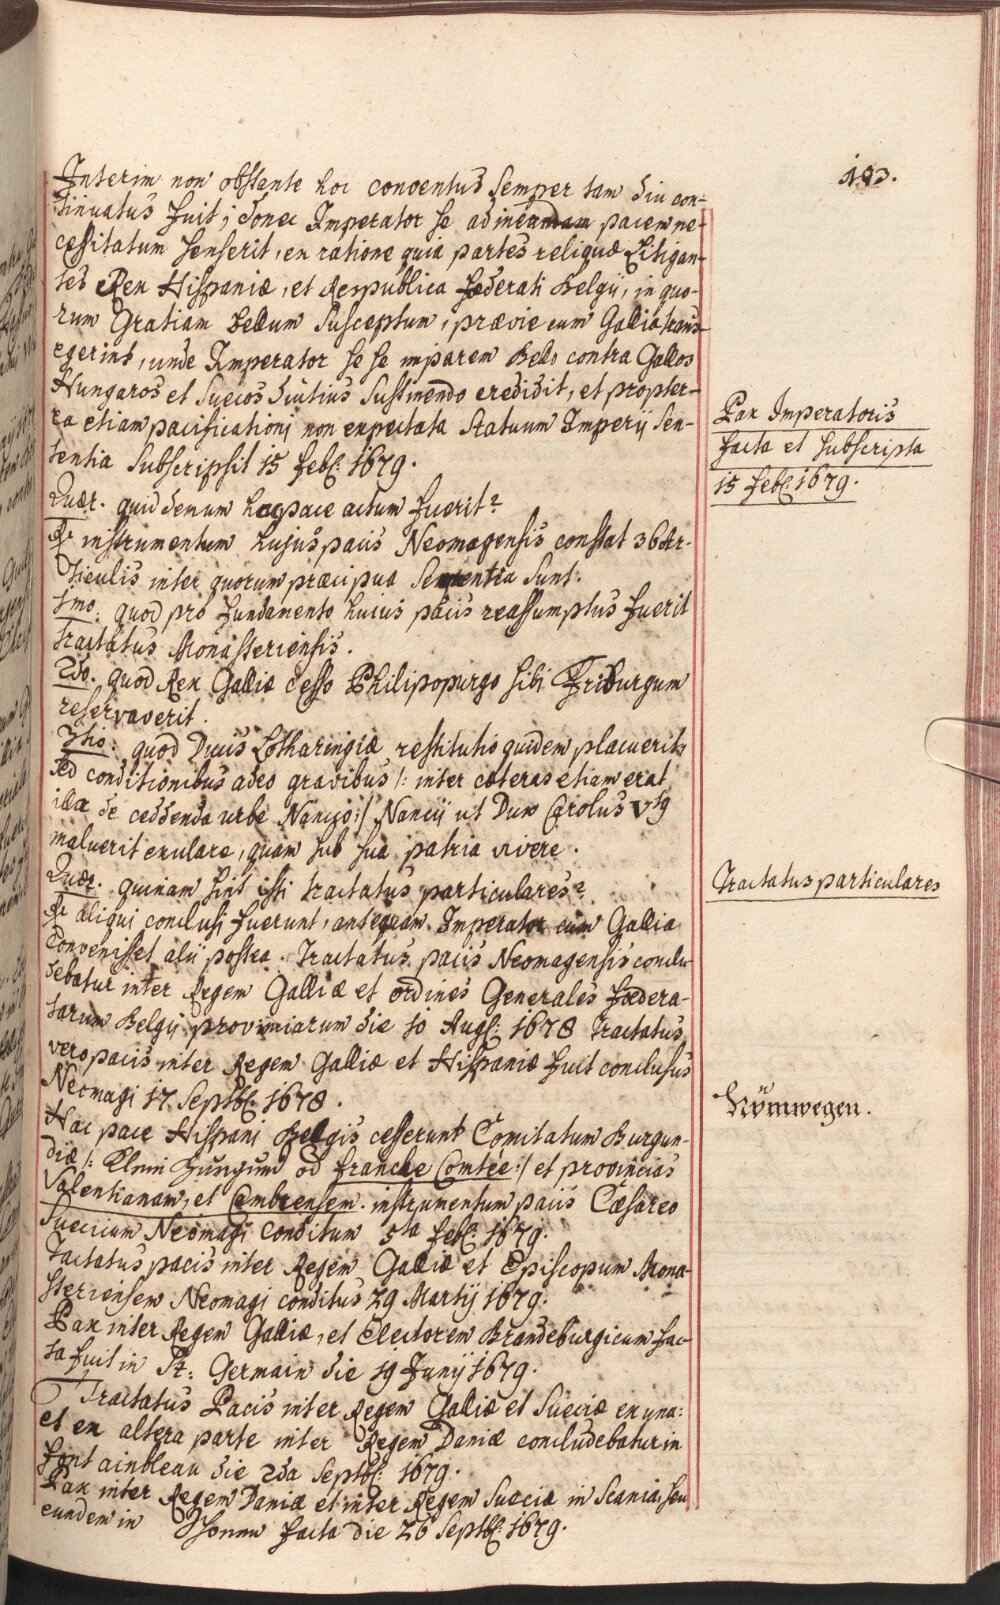 193.
Interim non obstante hoc conventus semper tam diu con-
tinuatus fuit; donec Imperator se ad ineandam pacem ne-
cessitatum senserit, ex ratione quia partes reliquæ Litigan-
tes Rex Hispaniæ, et Respublica fœderati Belgij, in quo-
rum Gratiam bellum susceptum, prævie cum Gallia trans-
egerint, unde Imperator se se imparem Bello contra Gallos
Hungaros et Suecos diutius sustinendo credidit, et propter-
ea etiam pacificationi non expectata Statuum Imperij sen-
tentia subscripsit 15 feb: 1679.
Pax Imperatoris
facta et subscripta
15 feb: 1679.
Quær. quid demum hac pace actum fuerit?
Rx instrumentum hujus pacis Neomagensis constat 36 Ar-
ticulis inter quorum præcipua sequentia sunt.
1mo. quod pro fundamento huius pacis reassumptus fuerit
tractatus Monasteriensis.
2do. quod Rex Galliæ cesso Philipopurgo sibi Friburgum
reservaverit.
3tio: quod Ducis Lotharingiæ restitutio quidem placuerit,
sed conditionibus adeo gravibus /: inter cæteras etiam erat
illa de cedenda urbe Nancijo:/ Nancij ut Dux Carolus Vtg
maluerit exulare, quam sub sua patria vivere.
Quær. quinam sint isti tractatus particulares?
Tractatus particulares
Rx aliqui conclusi fuerunt, antequam Imperator cum Gallia
convenisset alii postea. Tractatus pacis Neomagensis conclu-
debatur inter Regem Galliæ et ordines Generales fœdera-
tarum Belgij provinciarum die 10 Aug: 1678 Tractatus
vero pacis inter Regem Galliæ et Hispaniæ fuit conclusus
Neomagi 17 Septb: 1678.
Nÿmwegen.
Hac pace Hispani Belgis cesserunt Comitatum Burgun-
diæ /: Klein Burgund od franche Comtée:/ et provincias
Valentianam, et Cambrensem. instrumentum pacis Cæsareo
Suecicum Neomagi conditum 5ta feb: 1679.
Tactatus pacis inter Regem Galliæ et Episcopum Mona-
steriensem Neomagi conditus 29 Martij 1679.
Pax inter Regem Galliæ, et Electorem Brandeburgicum fac-
ta fuit in St: Germain die 19 Junij 1679.
Tractatus Pacis inter Regem Galliæ et Sueciæ ex una:
et ex altera parte inter Regem Daniæ concludebatur in
font ainbleau die 2da Septb: 1679.
Pax inter Regem Daniæ et inter Regem Sueciæ in Scania, seu
eundem in facta die 26 Septb: 1679.